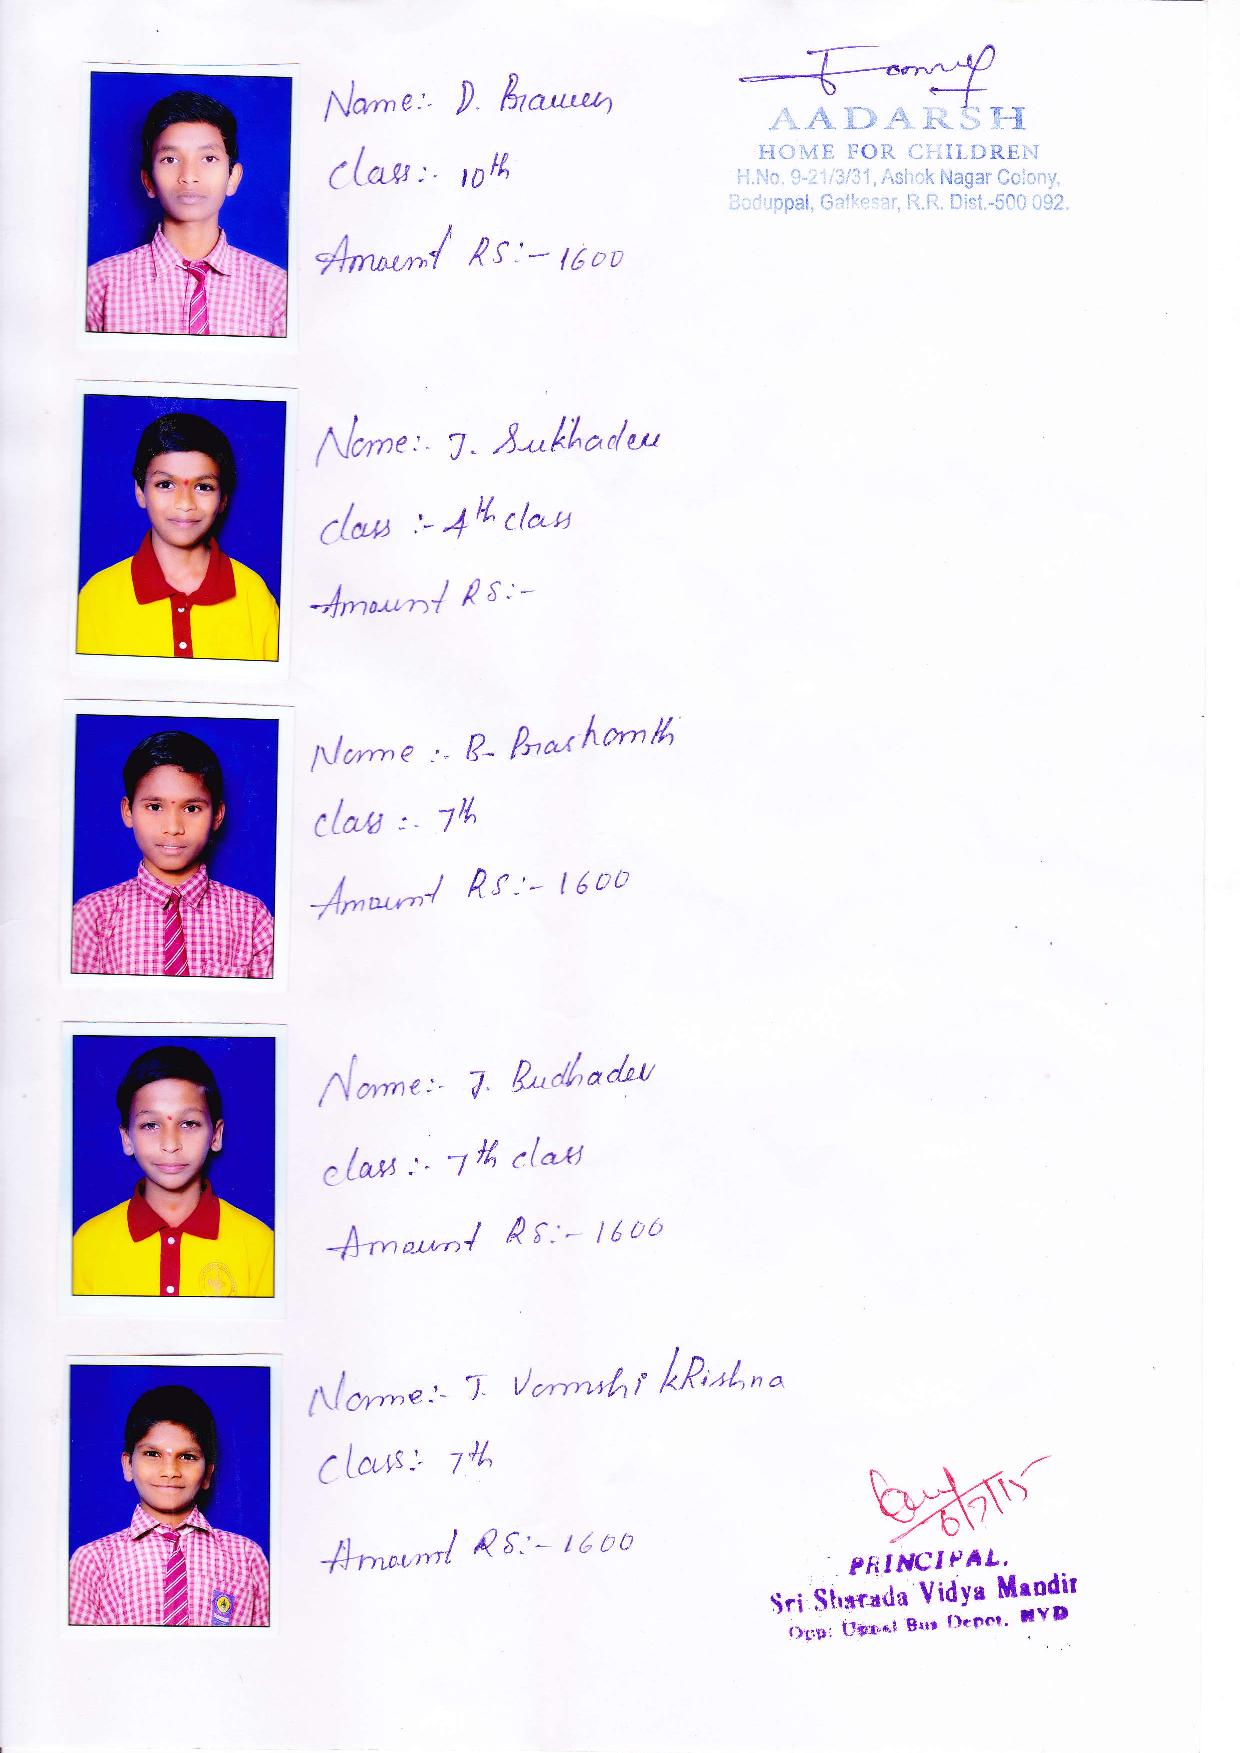 AADARSH
HOME FOR CHILDREN
H.No. 9-21/3/31, Ashok Nagar Colony,
Boduppal, Gatkesar, R.R. Dist.-500 092.
Name:- D. Praveen
Class:- 10th
Amount RS:- 1600
Name:- J. Sukhadev
class :- 4th class
Amount RS:-
Name :- B- Prashanth
class :- 7th
Amount RS:- 1600
Name:- J. Budhadev
class :- 7th class
Amount RS:- 1600
Name:- T. Vamshi kRishna
Class:- 7th
Amount RS:- 1600
6/7/15
PRINCIPAL.
Sri Sharada Vidya Mandir
Opp: Uppal Bus Depot. HYD